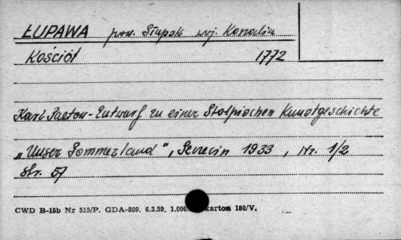 ŁUPAWA pow. Słupsk woj. Koszalin
Kościół 1772
Karl Paetow - Entwurf zu einer Stolpischen Kunstgeschichte
„Unser Pommerland", Szczecin 1933, Nr. 1/2
str. 57
CWD B-15b Nr 515/P. GDA-809. 6.3.59, 1.000 karton 180/V.